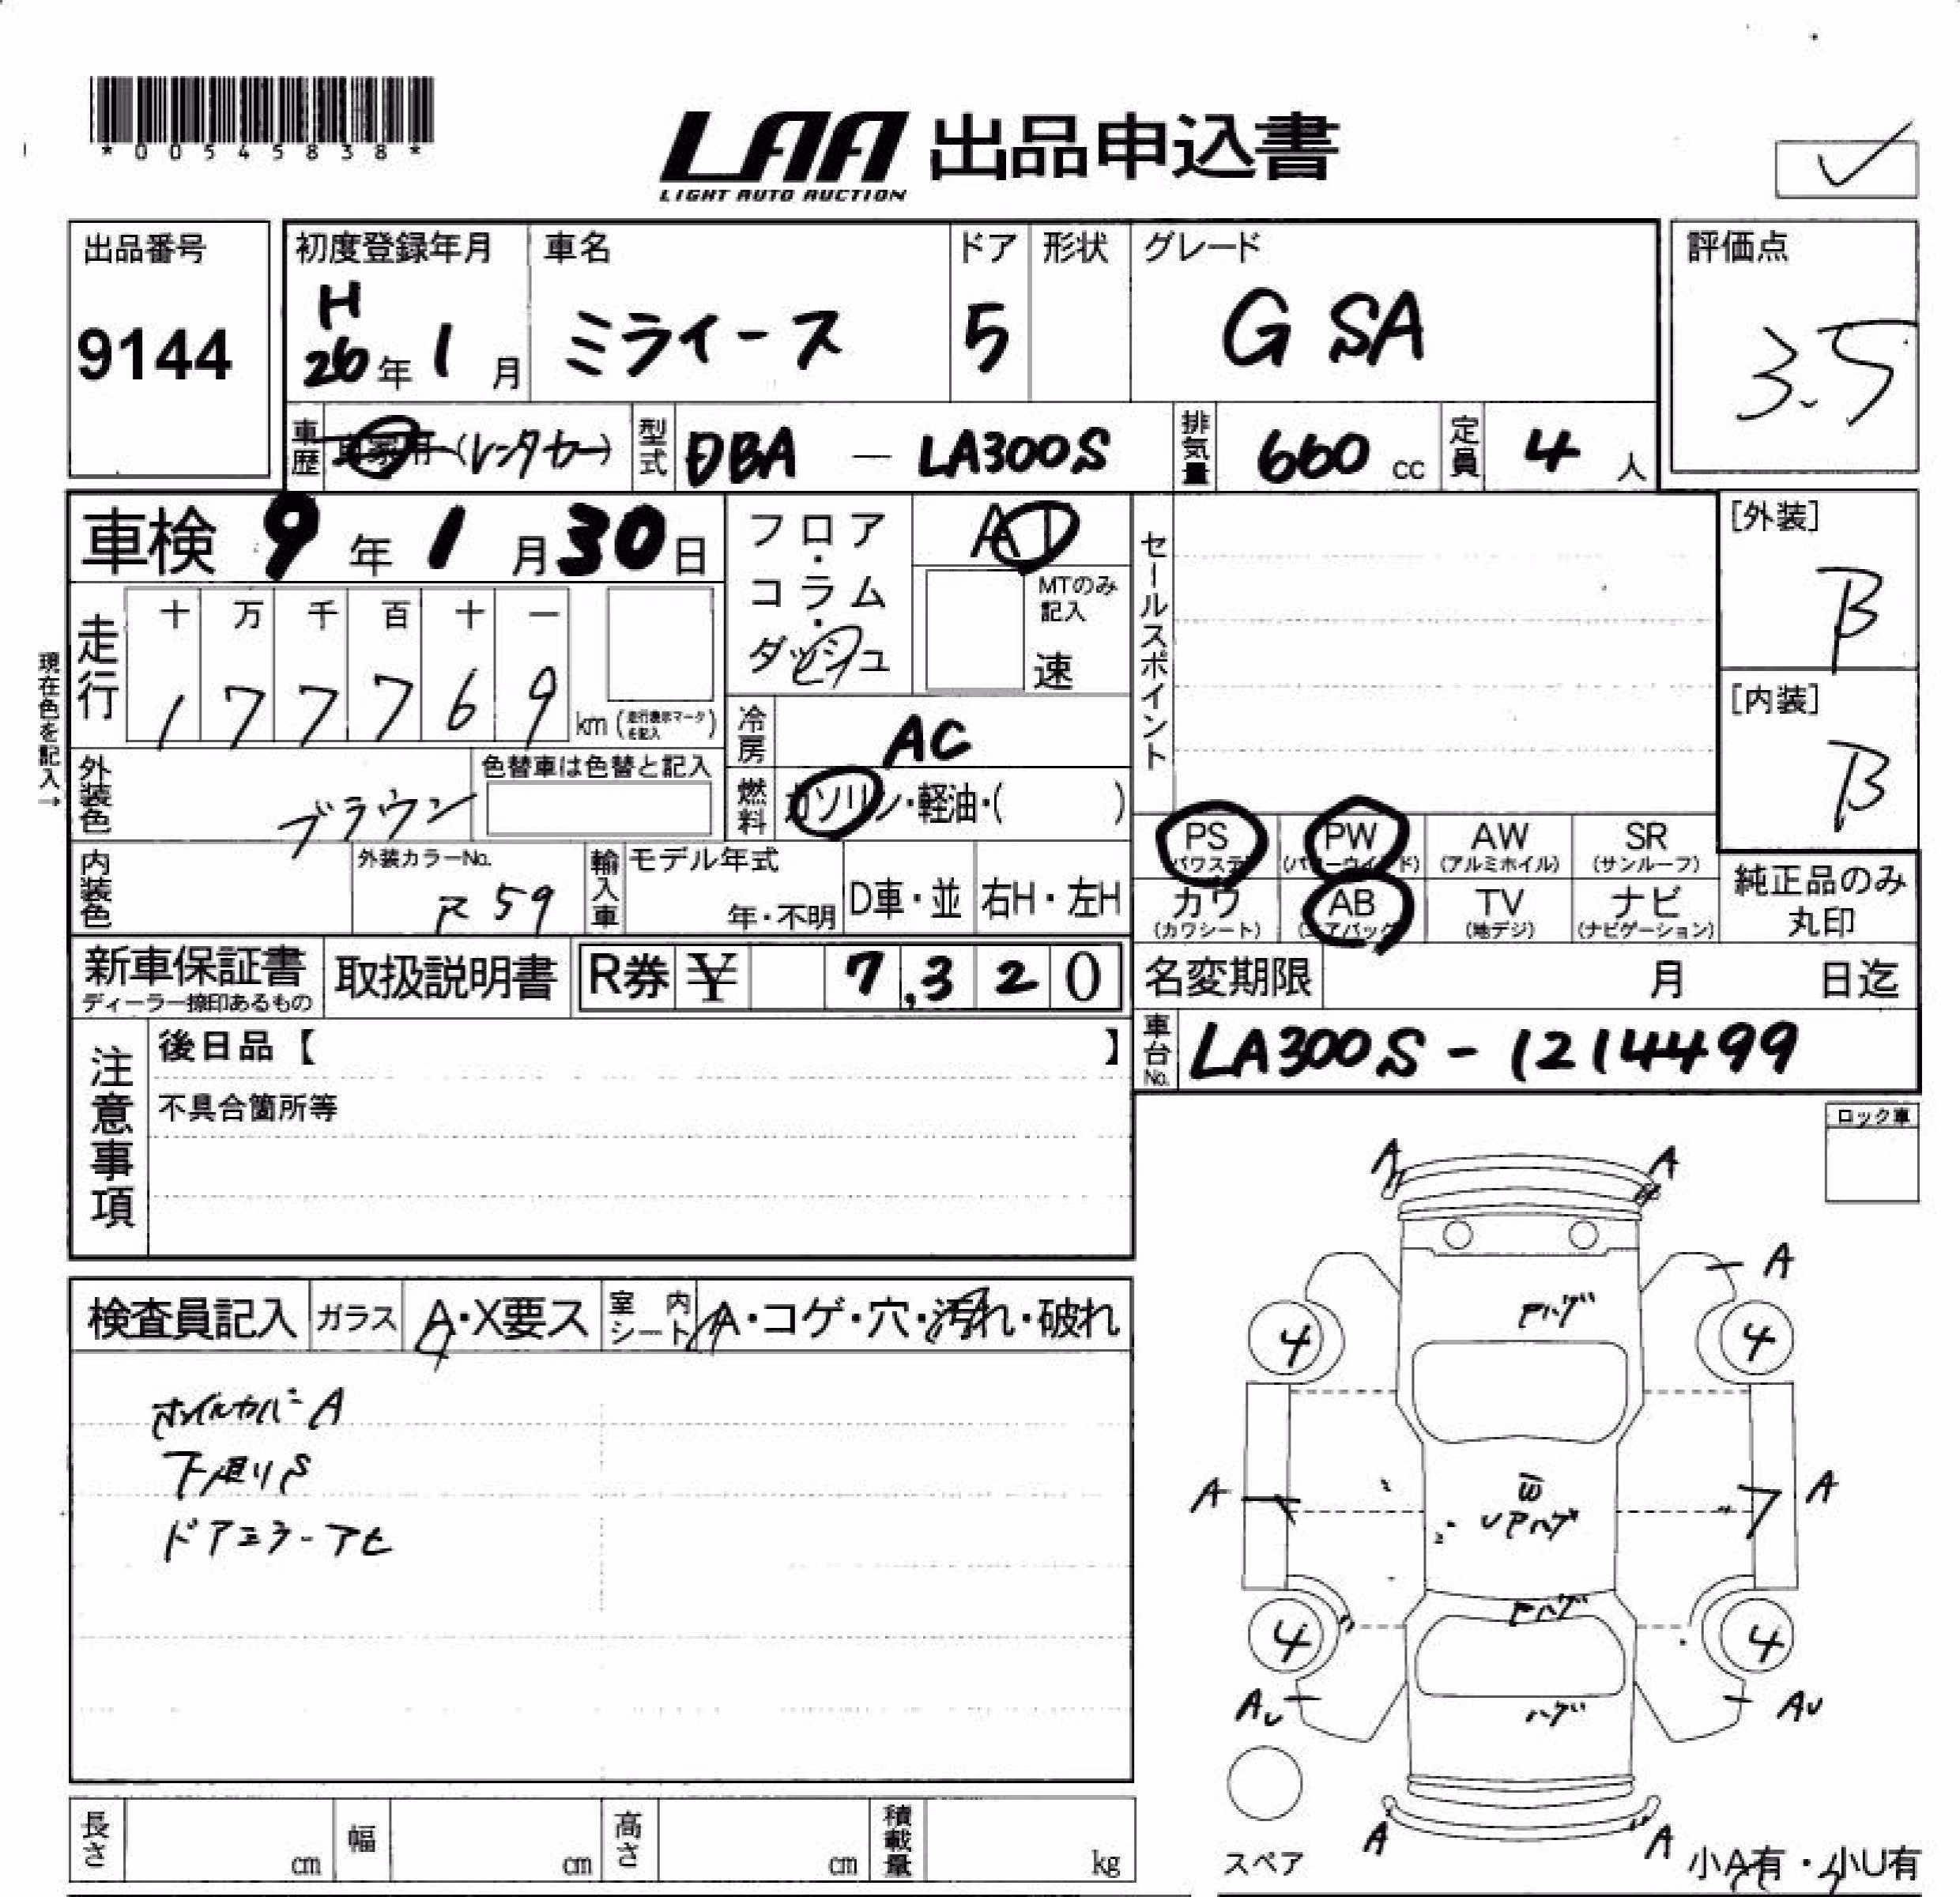 *00545838*
LAA 出品申込書
LIGHT AUTO AUCTION
出品番号
9144
初度登録年月
H
26年 1月
車名
ミライース
ドア
5
形状
グレード
G SA
評価点
3.5
車歴
自家用(レンタカー)
型式
DBA — LA300S
排気量
660 cc
定員
4 人
車検 9年 1月 30日
フロア・コラム・ダッシュ
AT
MTのみ記入
速
セールスポイント
[外装]
B
[内装]
B
現在色を記入→
走行
十 万 千 百 十 一
1 7 7 7 6 9 km (走行表示マークを記入)
冷房
AC
外装色
ブラウン
色替車は色替と記入
燃料
ガソリン・軽油・( )
内装色
外装カラーNo.
R59
輸入車
モデル年式
年・不明
D車・並
右H・左H
PS
(パワステ)
PW
(パワーウインド)
AW
(アルミホイル)
SR
(サンルーフ)
カワ
(カワシート)
AB
(エアバック)
TV
(地デジ)
ナビ
(ナビゲーション)
純正品のみ
丸印
新車保証書
ディーラー捺印あるもの
取扱説明書
R券 ¥ 7,320
名変期限 月 日迄
車台No.
LA300S-1214499
注意事項
後日品【 】
不具合箇所等
ロック車
検査員記入
ガラス
A・X要ス
室内シート
A・コゲ・穴・汚れ・破れ
ホイルカバーA
下廻りS
ドアミラーアセ
A A
A
Pハゲ
4 4
A A
UPハゲ
Pハゲ
4 4
AU AU
ハゲ
A A
スペア
小A有・小U有
長さ cm
幅 cm
高さ cm
積載量 kg